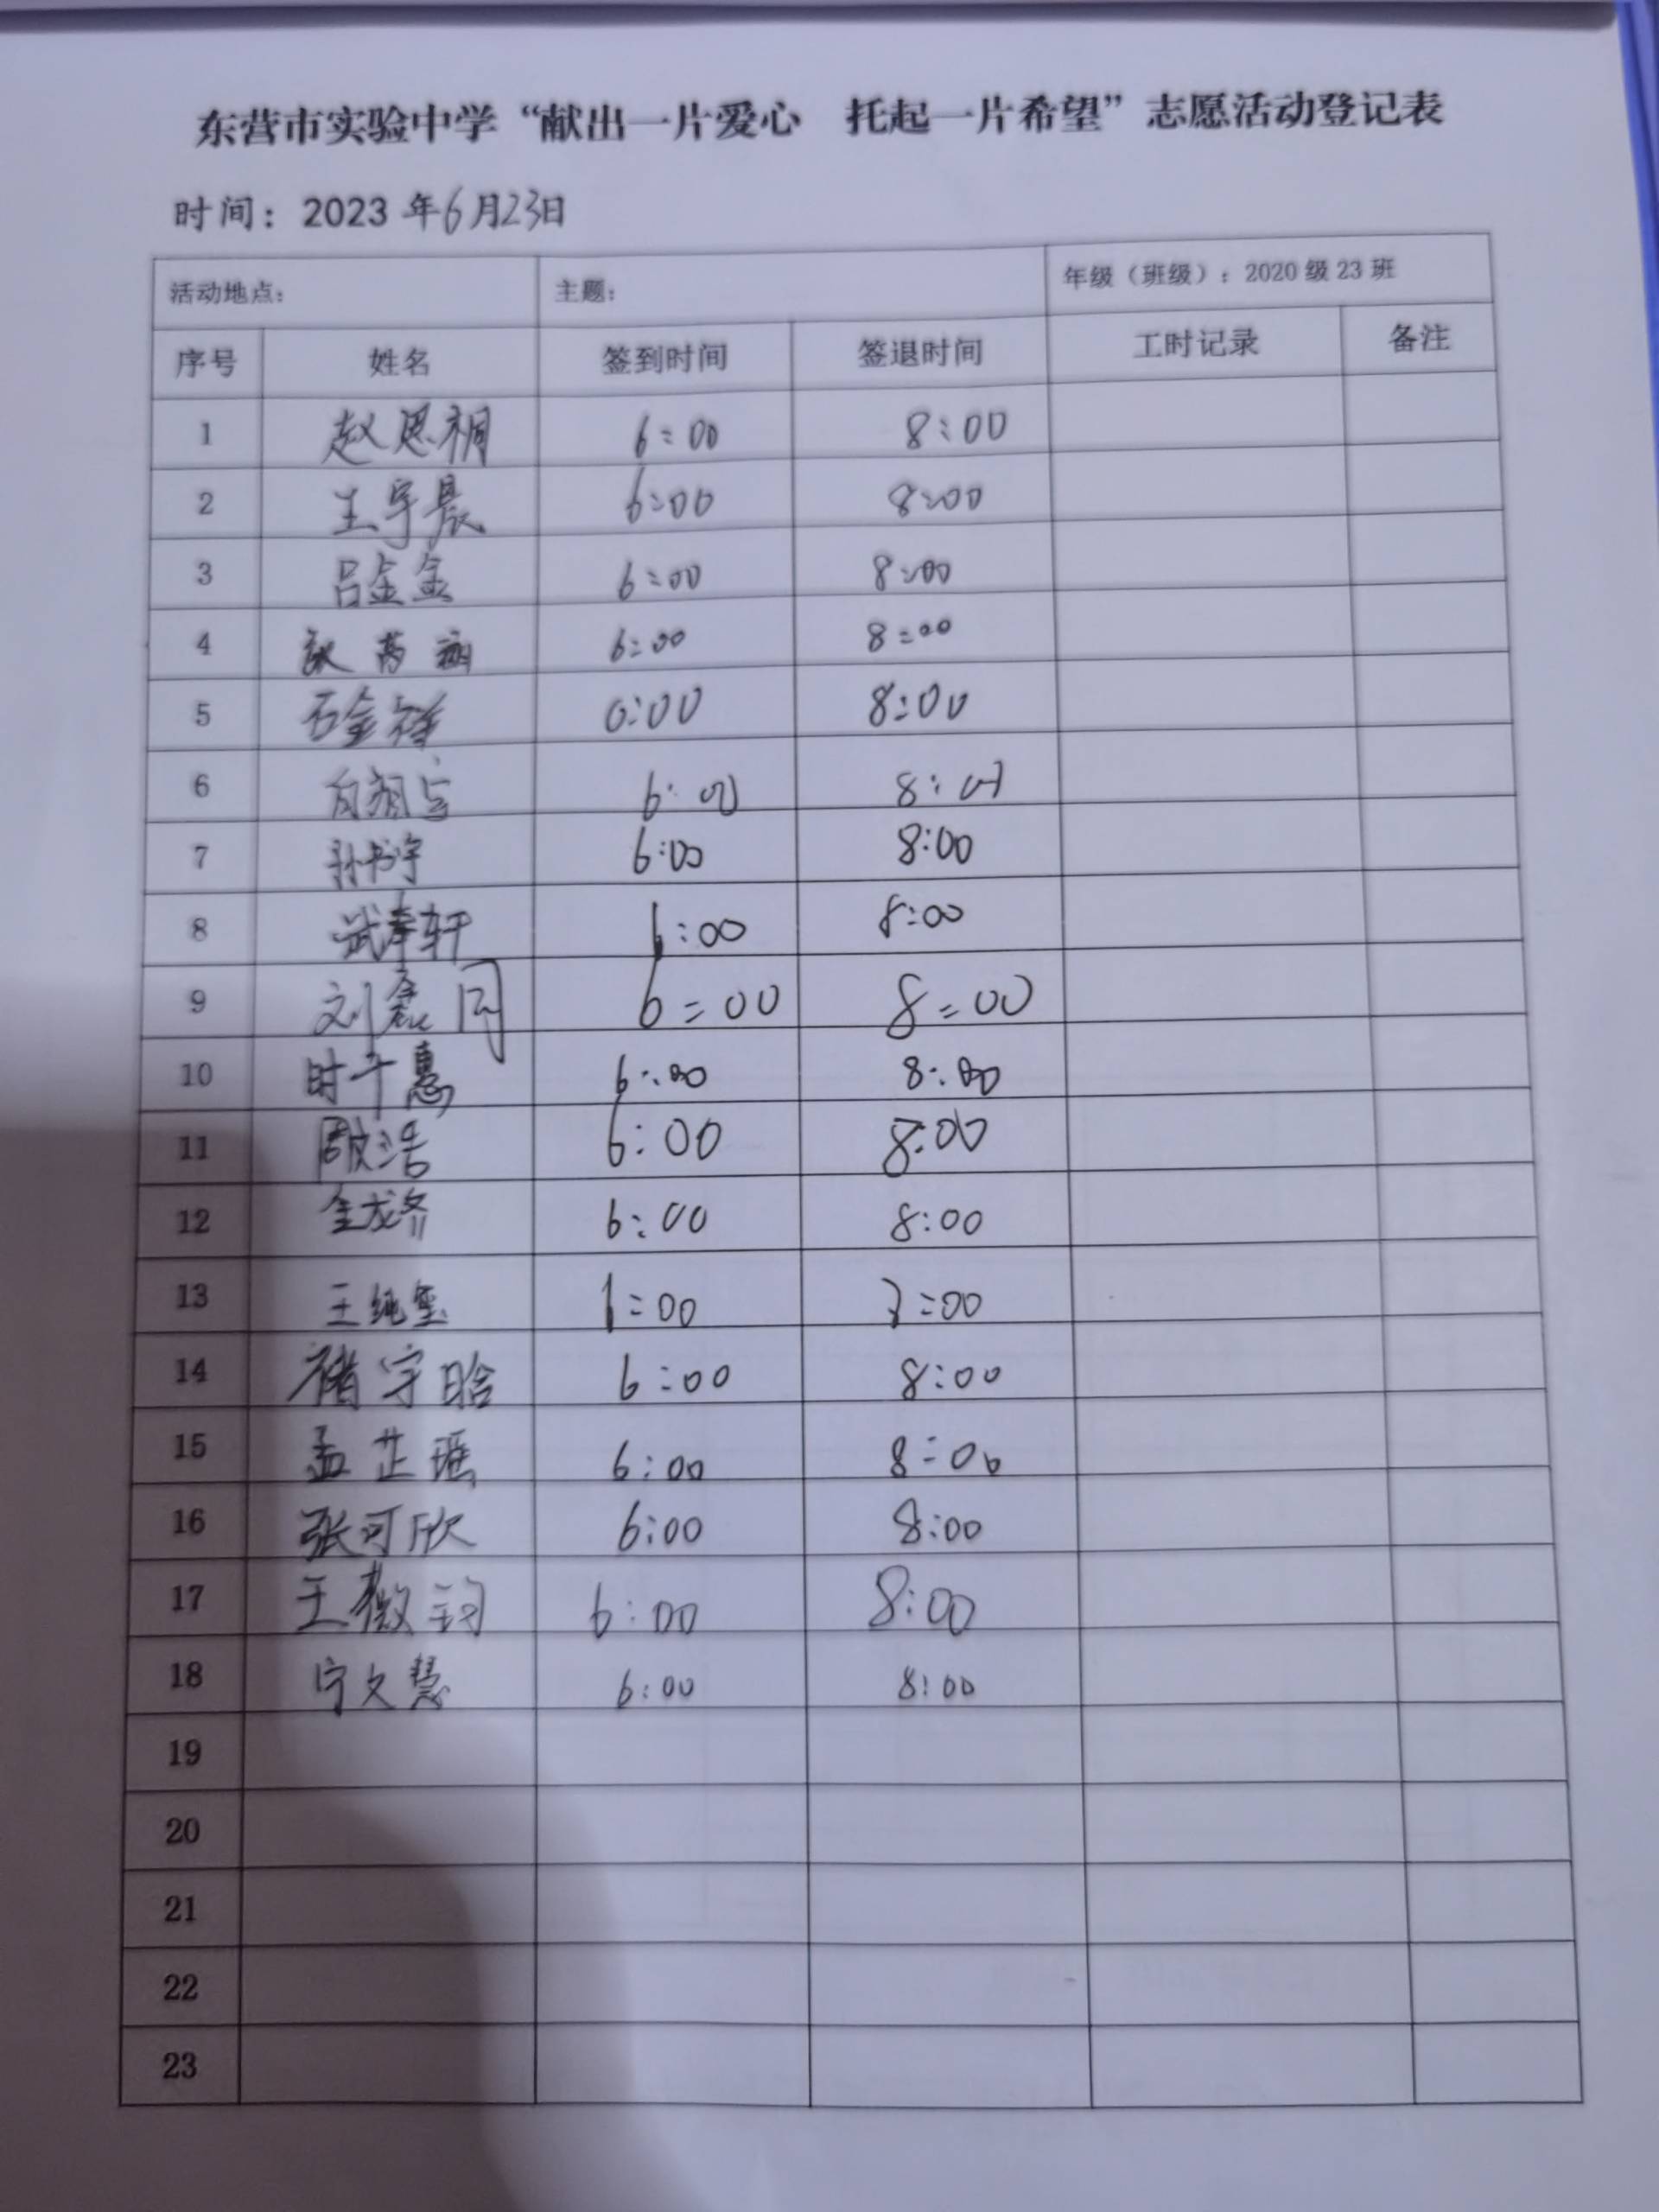 东营市实验中学“献出一片爱心 托起一片希望”志愿活动登记表
时间：2023年6月23日
活动地点： 主题： 年级（班级）：2020级23班
序号 姓名 签到时间 签退时间 工时记录 备注
1 赵恩桐 6:00 8:00
2 王宇晨 6:00 8:00
3 吕金金 6:00 8:00
4 6:00 8:00
5 石金祥 6:00 8:00
6 6:00 8:00
7 孙书宇 6:00 8:00
8 武奉轩 6:00 8:00
9 刘 同 6=00 8=00
10 时千惠 6:00 8:00
11 周文浩 6:00 8:00
12 金龙济 6:00 8:00
13 王纯玺 :00 :00
14 褚宇晗 6:00 8:00
15 孟芷瑶 6:00 8:00
16 张可欣 6:00 8:00
17 王薇 6:00 8:00
18 宁文慧 6:00 8:00
19
20
21
22
23